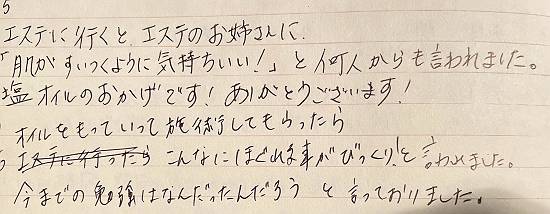 5
エステに行くと、エステのお姉さんに、
「肌がすいつくように気持ちいい!」と何人からも言われました。
塩オイルのおかげです!ありがとうございます!
オイルをもっていって施術してもらったら
エステに行ったら こんなにほぐれる事がびっくり!と言われました。
今までの勉強はなんだったんだろう と言っておりました。